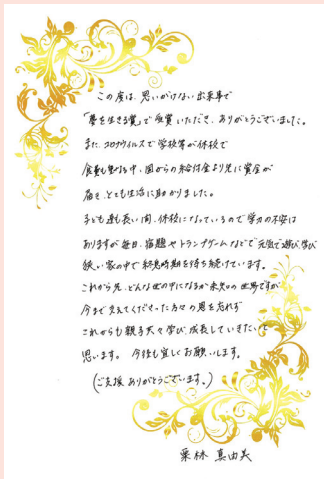 この度は、思いがけない出来事で
「夢を生きる賞」で受賞いただき、ありがとうございました。
また、コロナウイルスで学校等が休校で
食費も掛かる中、国からの給付金より先に資金が
届き、とても生活に助かりました。
子ども達も長い間、休校になっているので学力の不安は
ありますが毎日、宿題やトランプゲームなどで元気で遊び、学び
狭い家の中で終息時期を待ち続けています。
これから先、どんな世の中になるか未知の世界ですが
今まで支えてくださった方々の恩を忘れず
これからも親子共々学び、成長していきたいと
思います。今後も宜しくお願いします。
(ご支援ありがとうございます。)
栗林 真由美